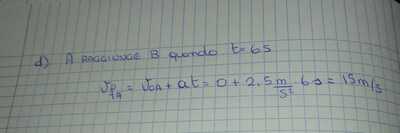 d) A RAGGIUNGE B quando t=6s
v_{fA} = v_{0A} + at = 0 + 2.5 m/s² 6s = 15m/s